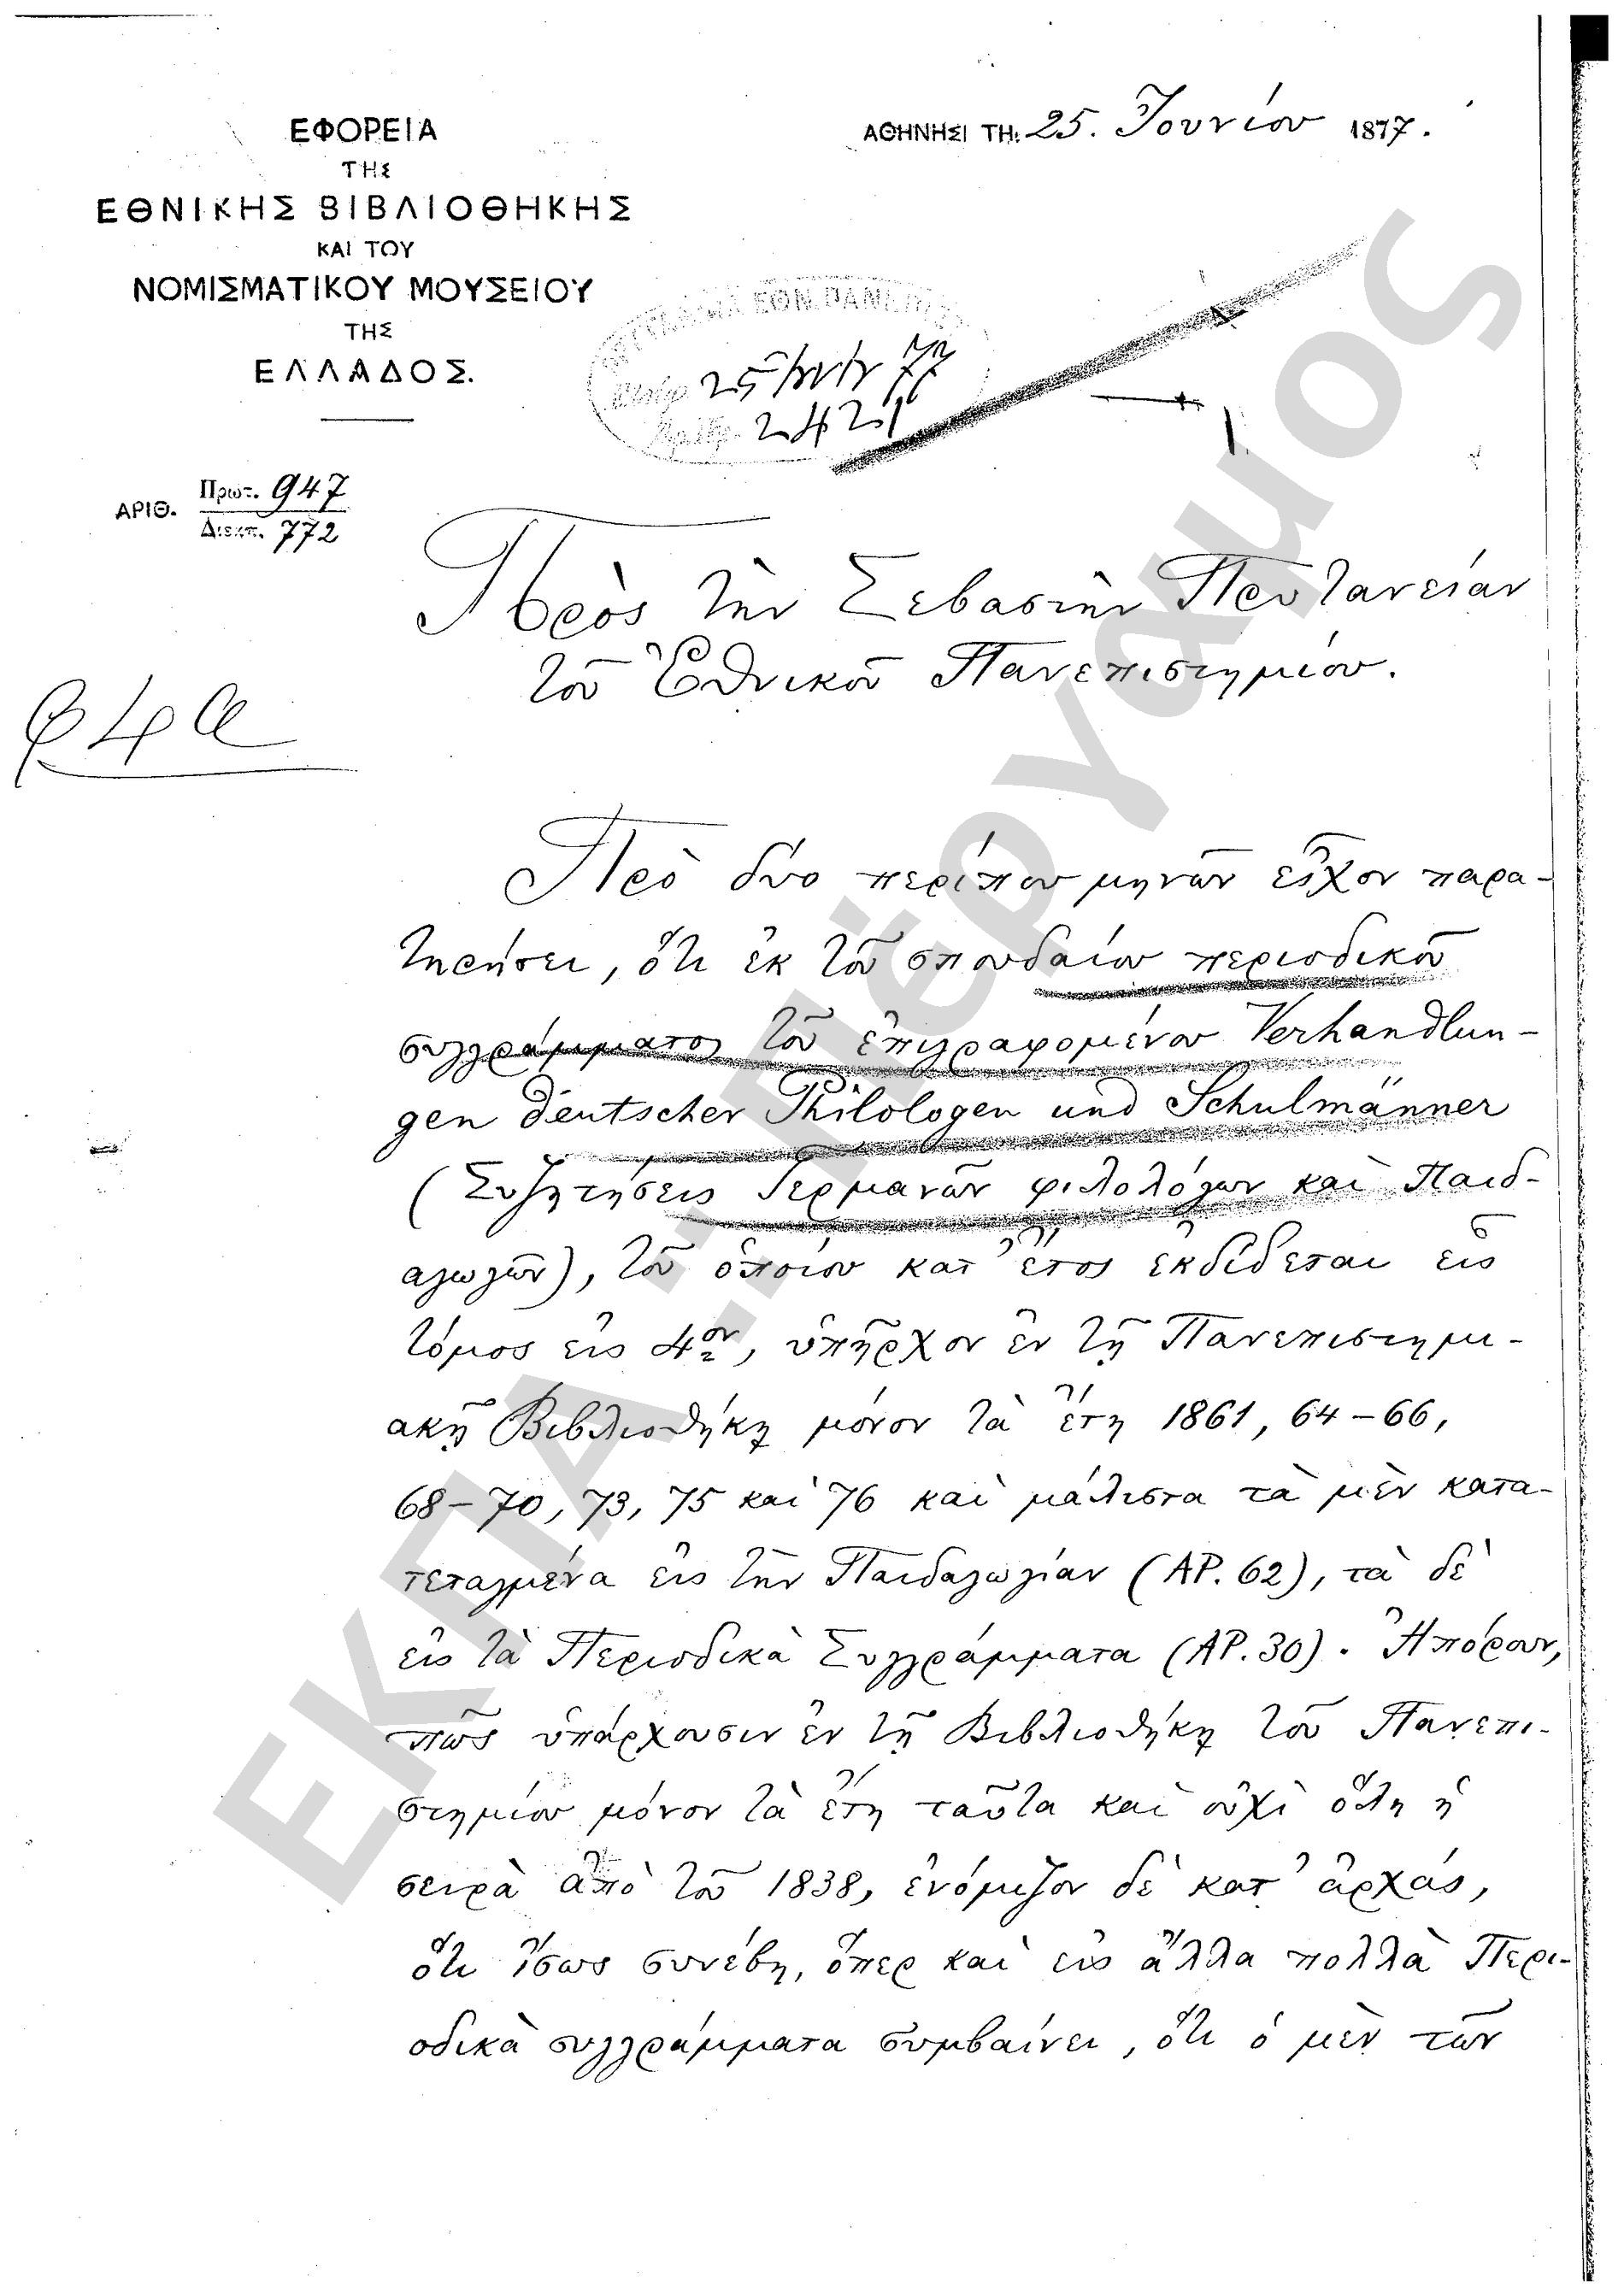 ΕΦΟΡΕΙΑ
ΤΗΣ
ΕΘΝΙΚΗΣ ΒΙΒΛΙΟΘΗΚΗΣ
ΚΑΙ ΤΟΥ
ΝΟΜΙΣΜΑΤΙΚΟΥ ΜΟΥΣΕΙΟΥ
ΤΗΣ
ΕΛΛΑΔΟΣ.
ΑΘΗΝΗΣΙ ΤΗ: 25. Ἰουνίου 1877.
ΕΘΝ. ΠΑΝΕΠΙΣ
25 77
2421
ΑΡΙΘ. Πρωτ. 947
Διεκπ. 772
Πρὸς τὴν Σεβαστὴν Πρυτανείαν
τοῦ Ἐθνικοῦ Πανεπιστημίου.
Πρὸ δύο περίπου μηνῶν εἶχον παρα-
τηρήσει, ὅτι ἐκ τοῦ σπουδαίου περιοδικοῦ
συγγράμματος τοῦ ἐπιγραφομένου Verhandlun-
gen deutscher Philologen und Schulmänner
(Συζητήσεις Γερμανῶν φιλολόγων καὶ Παιδ-
αγωγῶν), τοῦ ὁποίου κατ' ἔτος ἐκδίδεται εἷς
τόμος εἰς 4ον, ὑπῆρχον ἐν τῇ Πανεπιστημι-
ακῇ Βιβλιοθήκῃ μόνον τὰ ἔτη 1861, 64-66,
68-70, 73, 75 καὶ 76 καὶ μάλιστα τὰ μὲν κατα-
τεταγμένα εἰς τὴν Παιδαγωγίαν (ΑΡ. 62), τὰ δὲ
εἰς τὰ Περιοδικὰ Συγγράμματα (ΑΡ. 30). Ἠπόρουν,
πῶς ὑπάρχουσιν ἐν τῇ Βιβλιοθήκῃ τοῦ Πανεπι-
στημίου μόνον τὰ ἔτη ταῦτα καὶ οὐχὶ ὅλη ἡ
σειρὰ ἀπὸ τοῦ 1838, ἐνόμιζον δὲ κατ' ἀρχάς,
ὅτι ἴσως συνέβη, ὅπερ καὶ εἰς ἄλλα πολλὰ Περι-
οδικὰ συγγράμματα συμβαίνει, ὅτι ὁ μὲν τῶν
ΕΚΠΑ - Πέργαμος